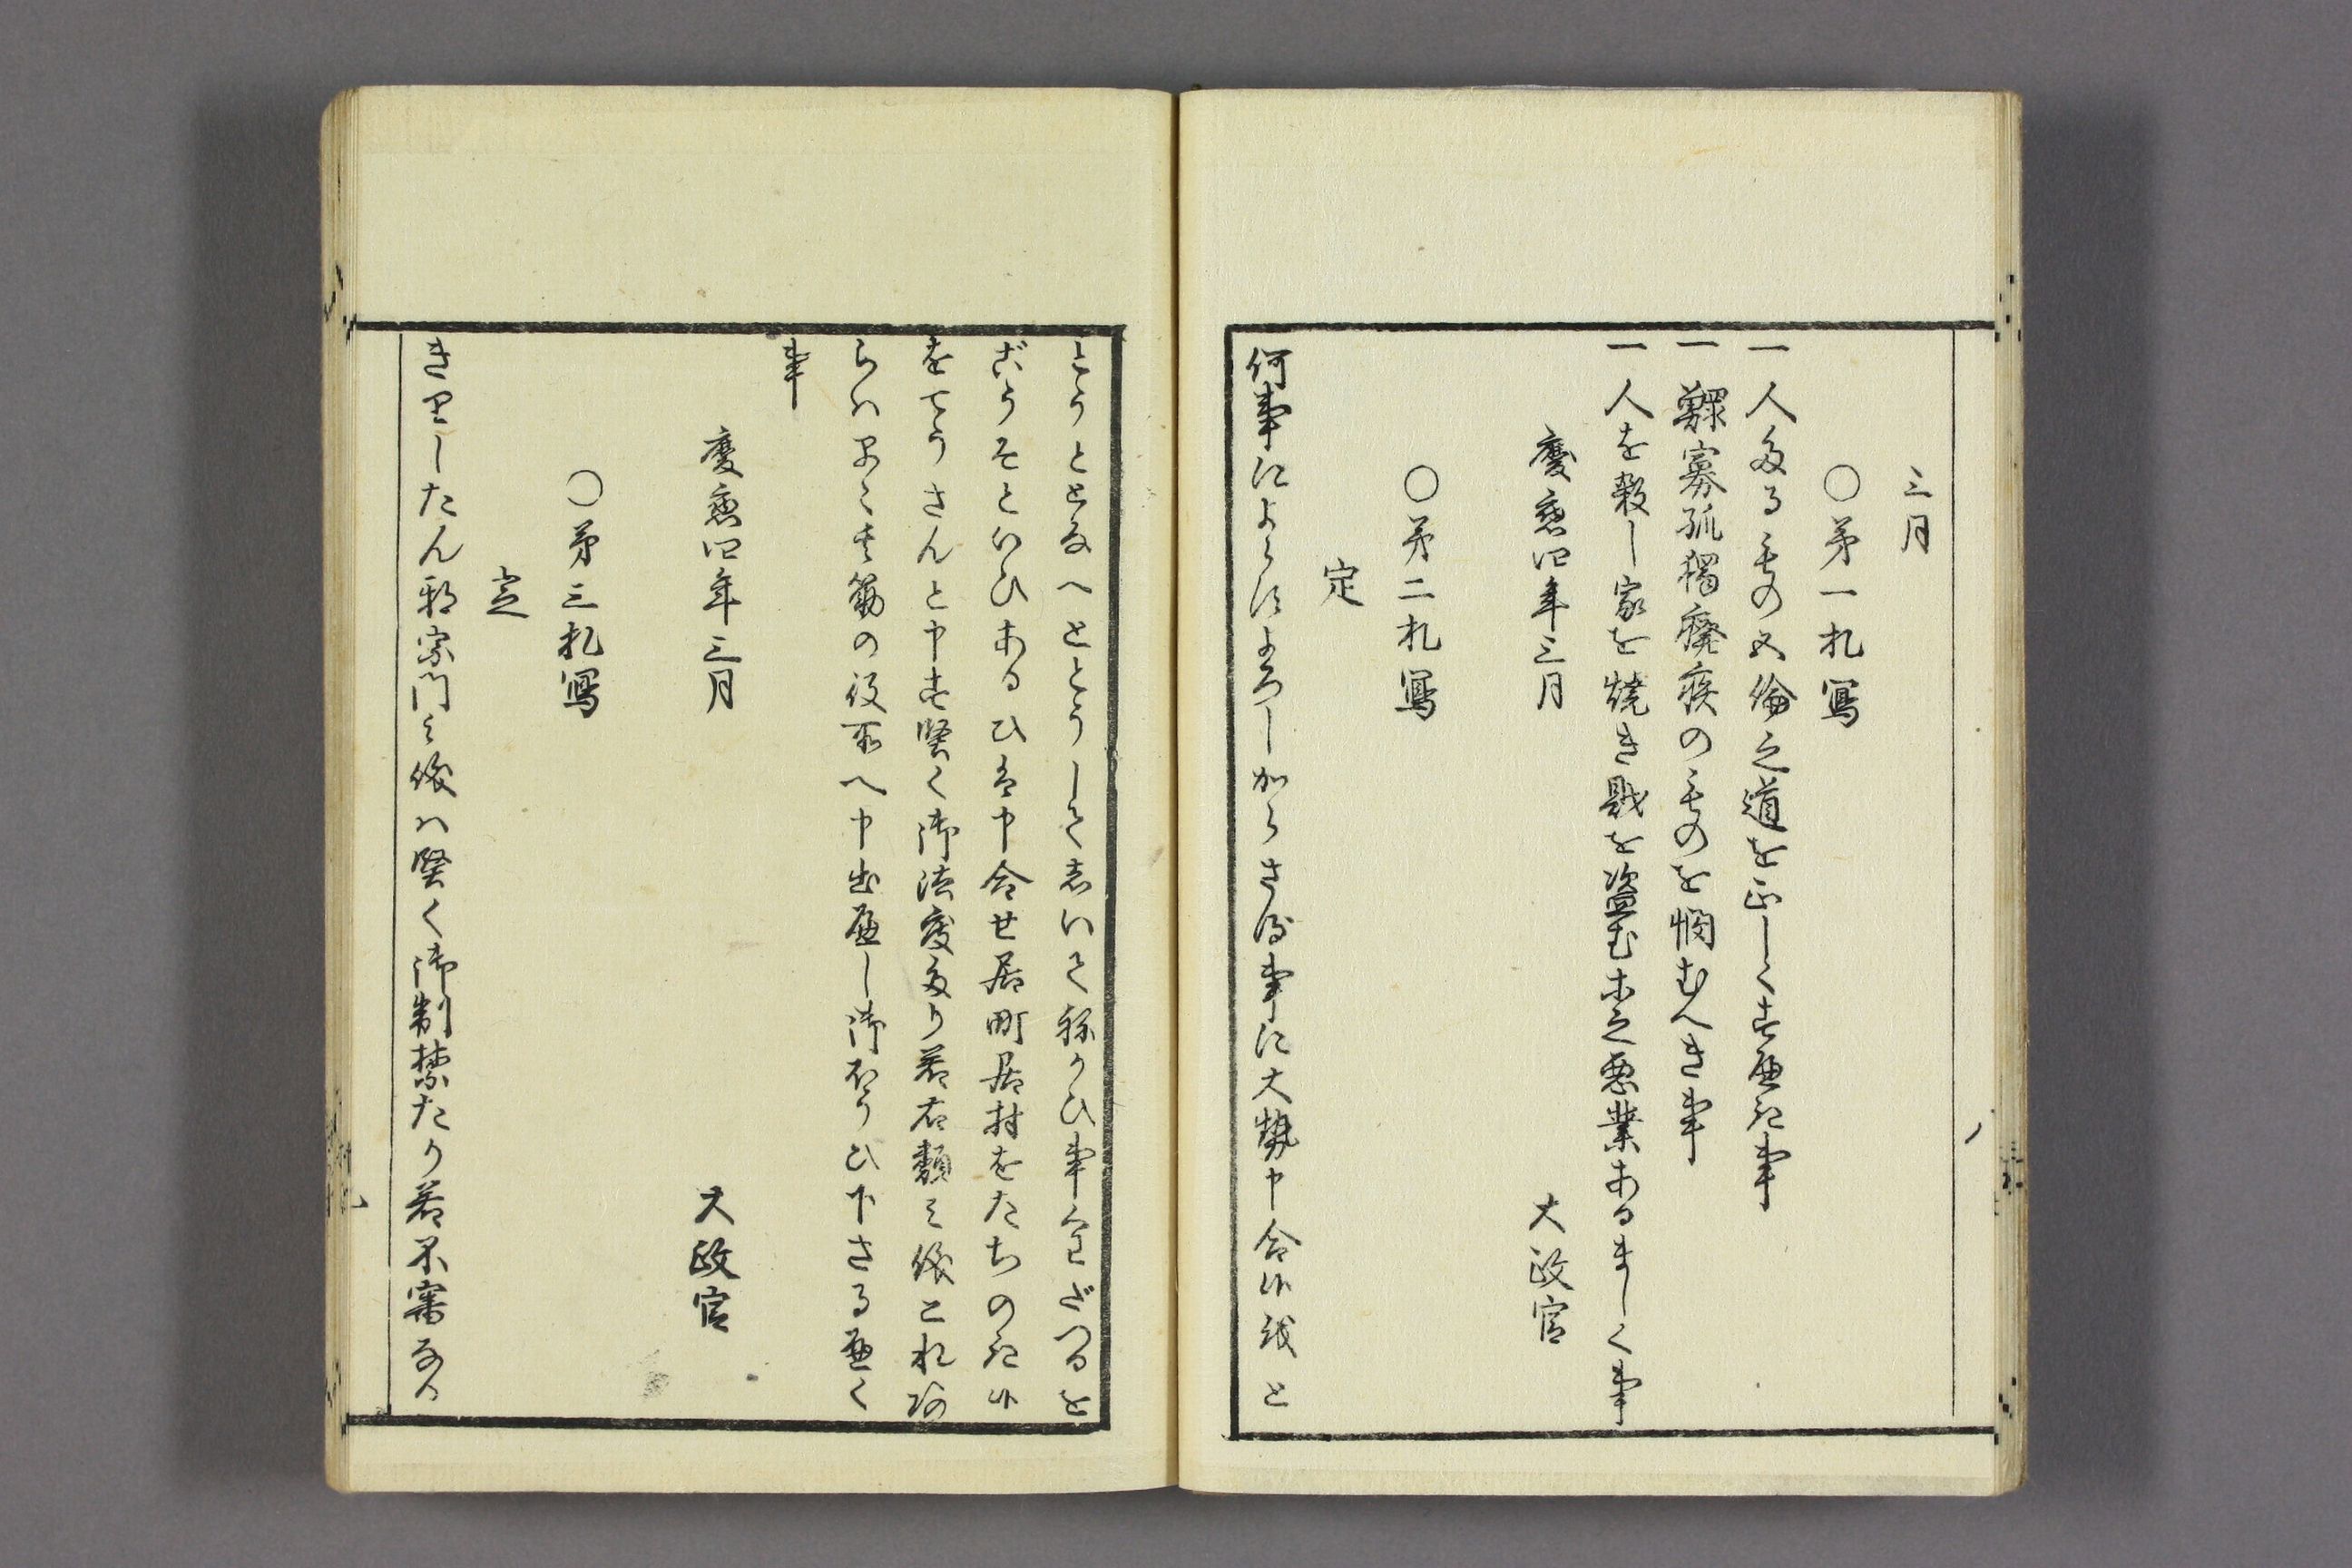 三月
○第一札寫
一人たるものの五倫之道を正しくすへき事
一鰥寡孤獨癈疾のものを憫むへき事
一人を殺し家を焼き財を盗む等之悪業あるましく事
慶應四年三月　大政官
○第二札寫
定
何事によらすよろしからさる事に大勢申合候越と
とうととなへととうしてしいてねかひ事企ざつるを
ごうそといひあるひは申合せ居町居村をたちのき候
をてうさんと申す堅く御法度たり若右類之儀これあ
らハ早々其筋の役所へ申出へし御ほうひ下さるへく
事
慶應四年三月　大政官
○第三札寫
定
きりしたん邪宗門之儀ハ堅く御制禁たり若不審なる